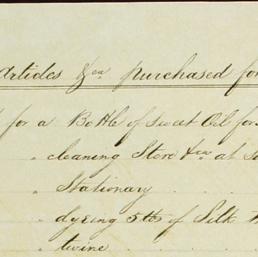 Articles &ca purchased for
for a Bottle of Sweet Oil for
" cleaning Store &ca at
" Stationary
" dyeing 5 lbs of Silk
twine